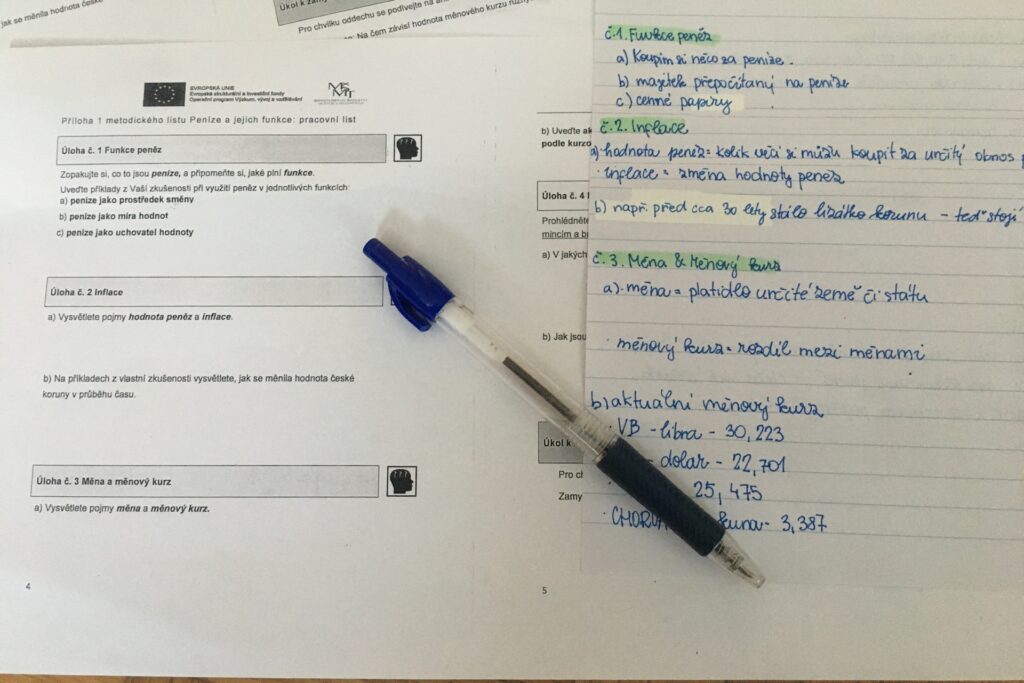 jak se měnila hodnota české
Úkol k
Pro chvilku oddechu se podívejte na
Na čem závisí hodnota měnového kurzu
EVROPSKÁ UNIE
Evropské strukturální a investiční fondy
Operační program Výzkum, vývoj a vzdělávání
Příloha 1 metodického listu Peníze a jejich funkce: pracovní list
Úloha č. 1 Funkce peněz
Zopakujte si, co to jsou peníze, a připomeňte si, jaké plní funkce.
Uveďte příklady z Vaší zkušenosti při využití peněz v jednotlivých funkcích:
a) peníze jako prostředek směny
b) peníze jako míra hodnot
c) peníze jako uchovatel hodnoty
Úloha č. 2 Inflace
a) Vysvětlete pojmy hodnota peněz a inflace.
b) Na příkladech z vlastní zkušenosti vysvětlete, jak se měnila hodnota české
koruny v průběhu času.
Úloha č. 3 Měna a měnový kurz
a) Vysvětlete pojmy měna a měnový kurz.
4
b) Uveďte
podle kurzo
Úloha č. 4
Prohlédněte
mincím a
a) V jakých
b) Jak jsou
Úkol k
Pro
Zamy
5
č.1. Funkce peněz
a) Koupím si něco za peníze.
b) majetek přepočítaný na peníze
c.) cenné papíry
č.2. Inflace
a) hodnota peněz = kolik věcí si můžu koupit za určitý obnos
· inflace = změna hodnoty peněz
b) např. před cca 30 lety stálo lízátko korunu - teď stojí
č.3. Měna & Měnový kurz
a). měna = platidlo určité země či státu
· měnový kurz = rozdíl mezi měnami
b) aktuální měnový kurz
· VB - libra - 30,223
- dolar - 22,701
25,475
· kuna - 3,387